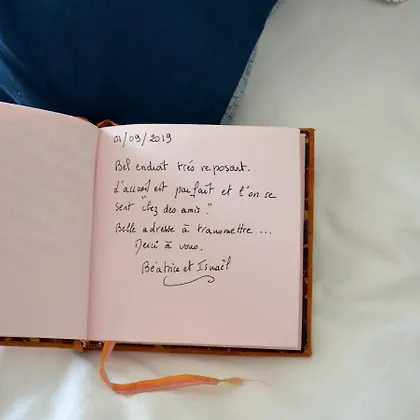 01/09/2019
Bel endroit très reposant.
L'accueil est parfait et l'on se
sent "chez des amis".
Belle adresse à transmettre ...
Merci à vous.
Béatrice et Ismaël